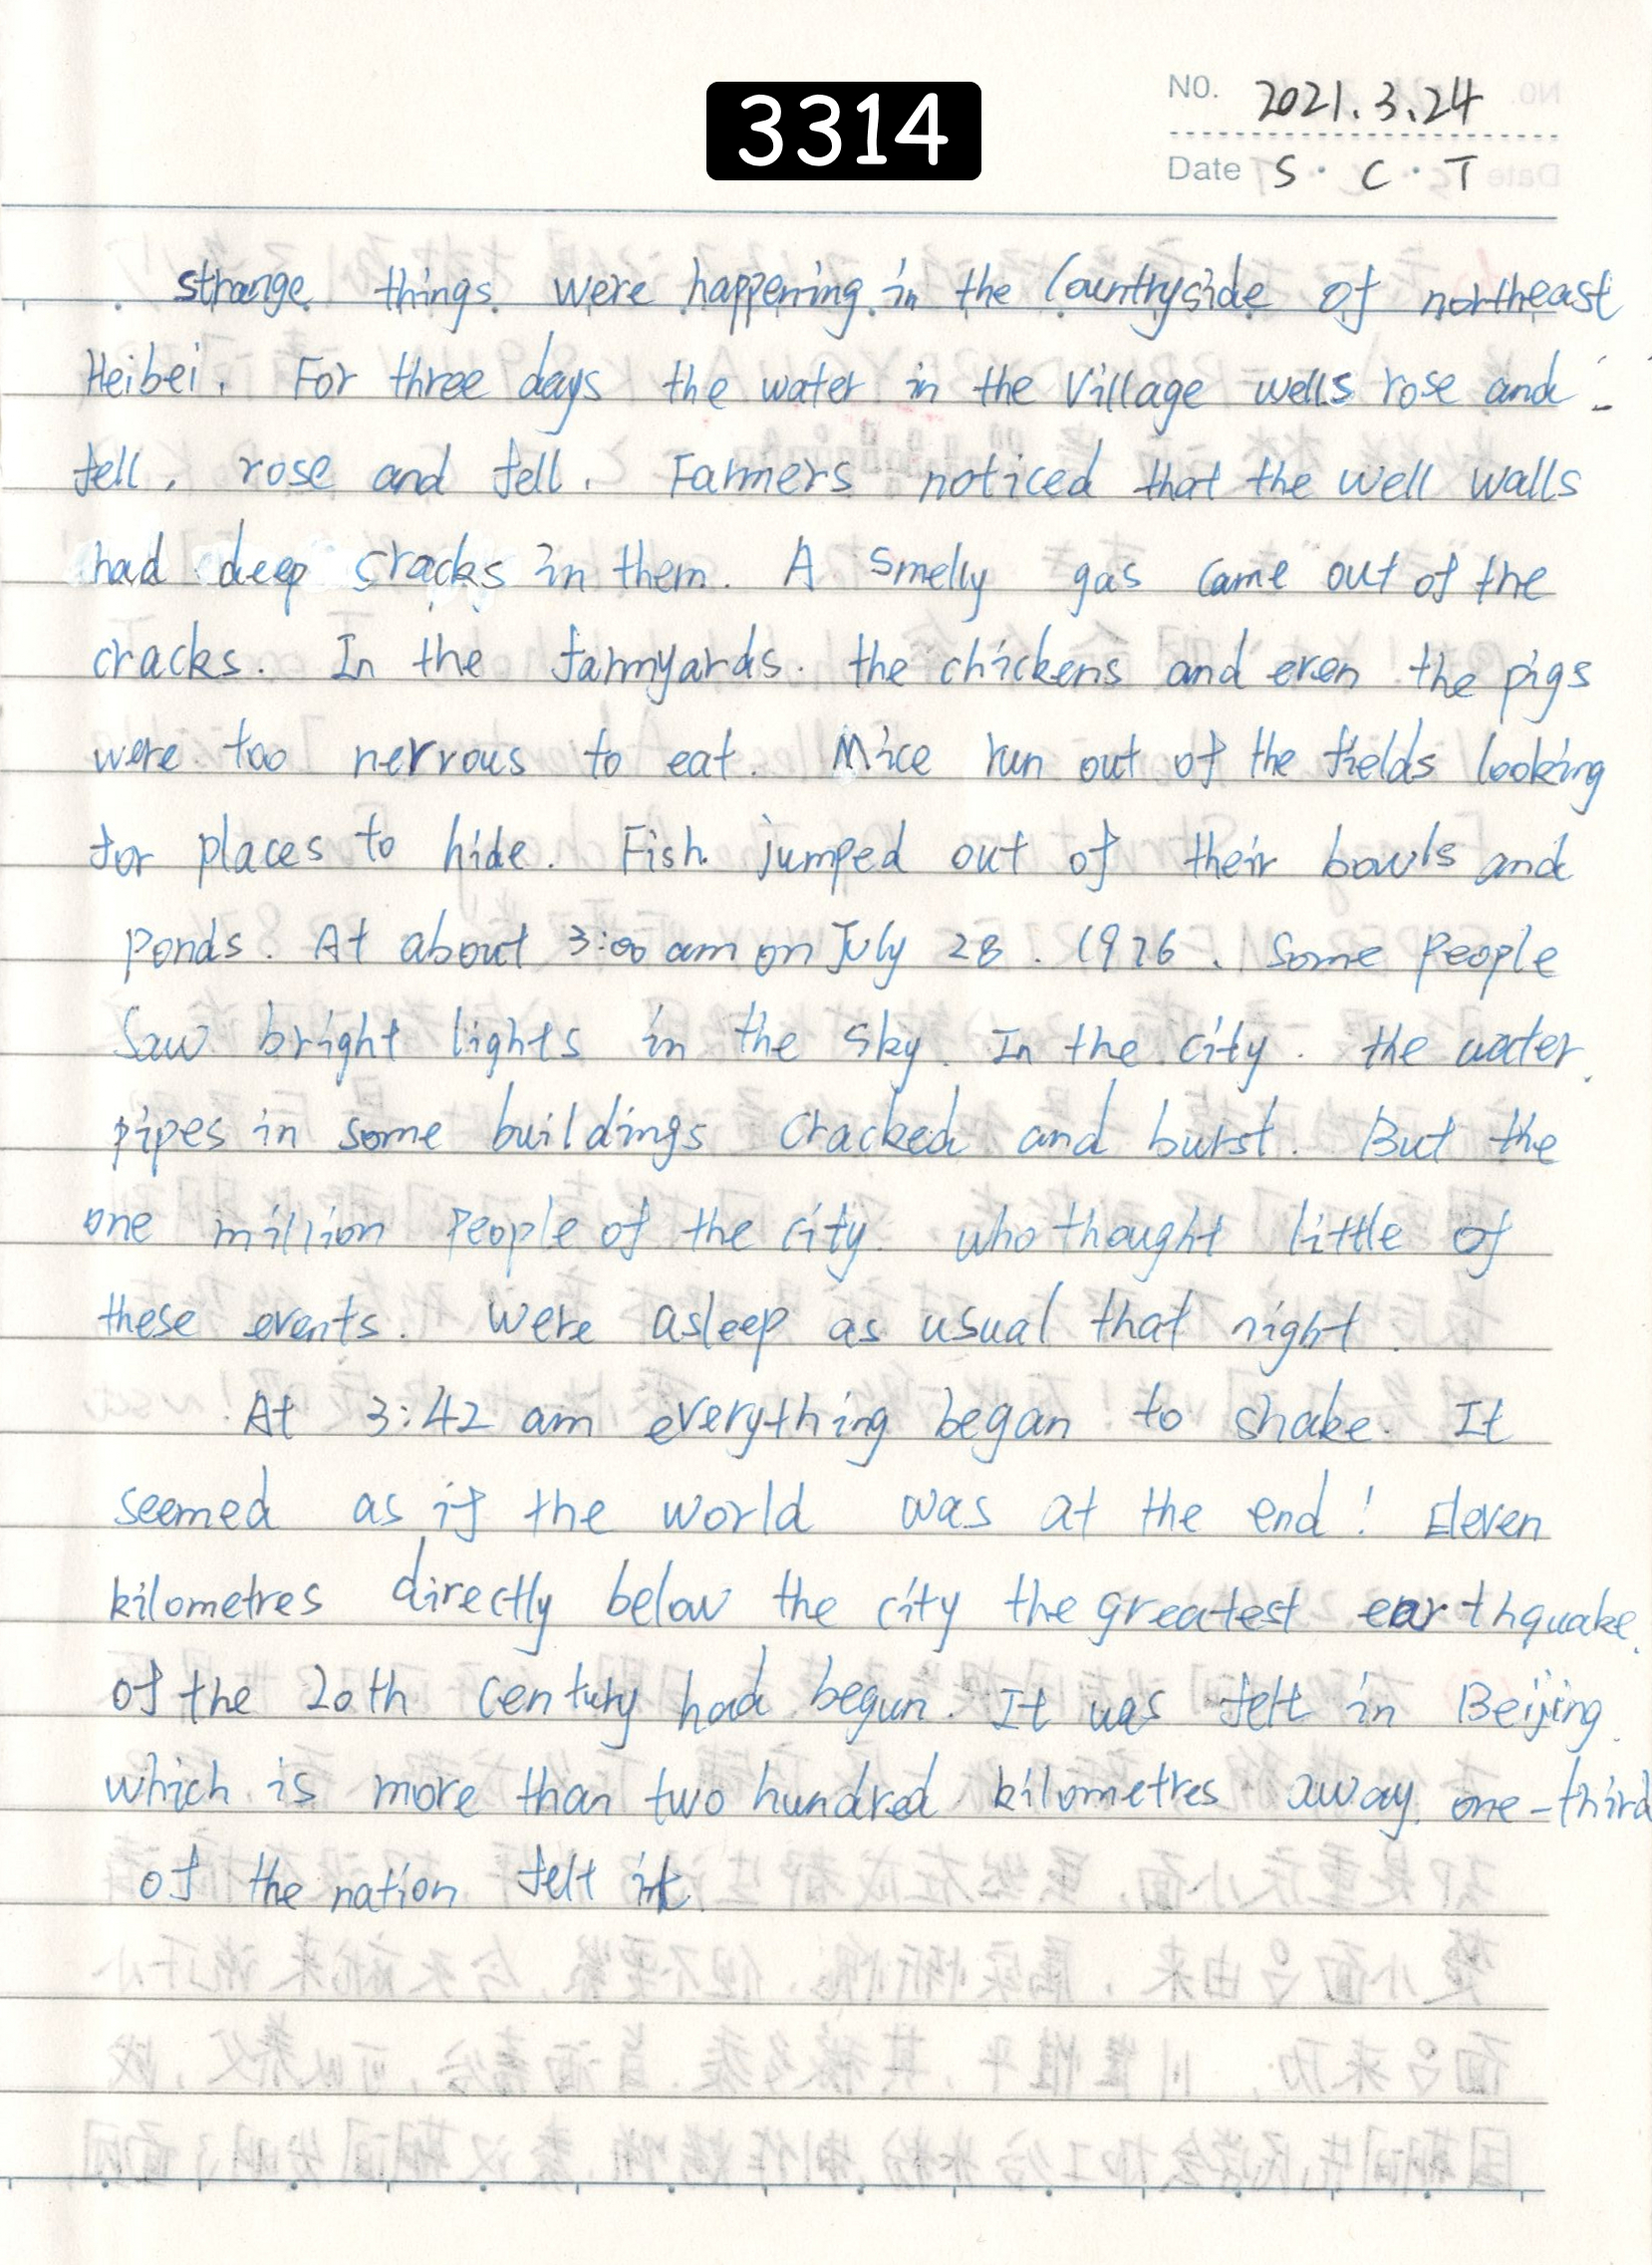 3314
NO. 2021.3.24
Date S · C · T
strange things were happening in the Countryside of northeast
Heibei. For three days the water in the Village wells rose and
fell, rose and fell. Farmers noticed that the well walls
had deep cracks in them. A smelly gas came out of the
cracks. In the farmyards. the chickens and even the pigs
were too nervous to eat. Mice run out of the fields looking
for places to hide. Fish jumped out of their bowls and
ponds. At about 3:00 am on July 28. 1976. Some People
Saw bright lights in the sky. In the city. the water
pipes in some buildings cracked and burst. But the
one million people of the city. who thought little of
these events. were asleep as usual that night.
At 3:42 am everything began to shake. It
seemed as if the world was at the end! Eleven
kilometres directly below the city the greatest earthquake
of the 20th century had begun. It was felt in Beijing
which is more than two hundred kilometres away. one-third
of the nation felt it.